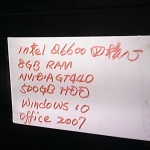 intel Q6600 四核心
8GB RAM
NVIDIA GT440
500GB HDD
Windows 10
Office 2007